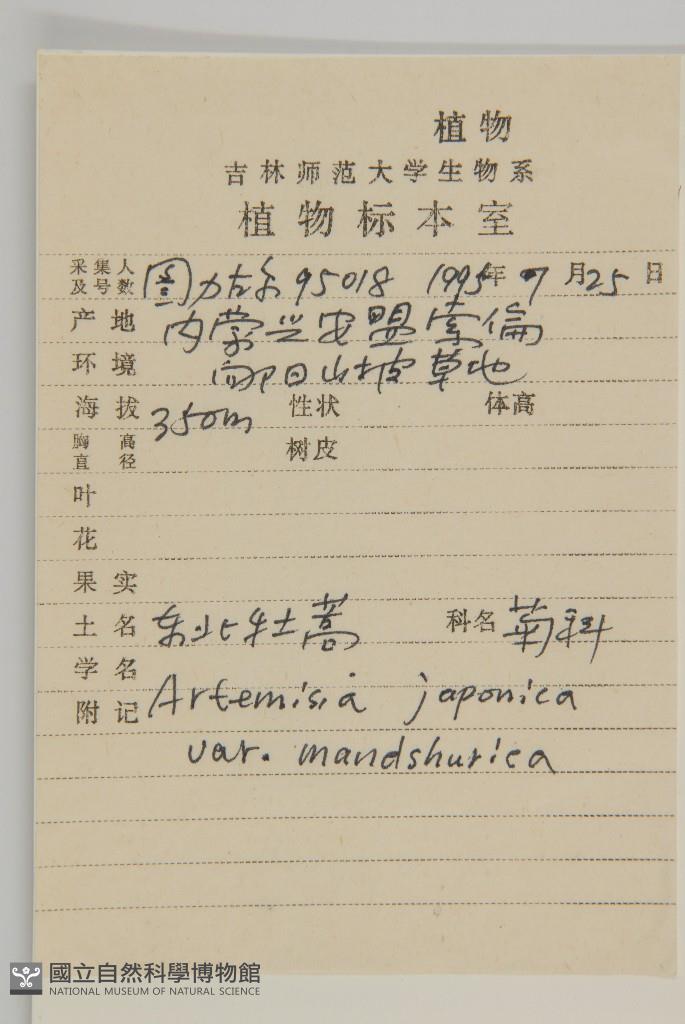 植物
吉林师范大学生物系
植物标本室
采集人及号数 图力古尔 95018 1995年 7月25日
产地 内蒙兴安盟索倫
环境 向阳山坡草地
海拔 350m 性状 体高
胸高直径 树皮
叶
花
果实
土名 东北牡蒿 科名 菊科
学名
附记 Artemisia japonica
var. mandshurica
國立自然科學博物館
NATIONAL MUSEUM OF NATURAL SCIENCE